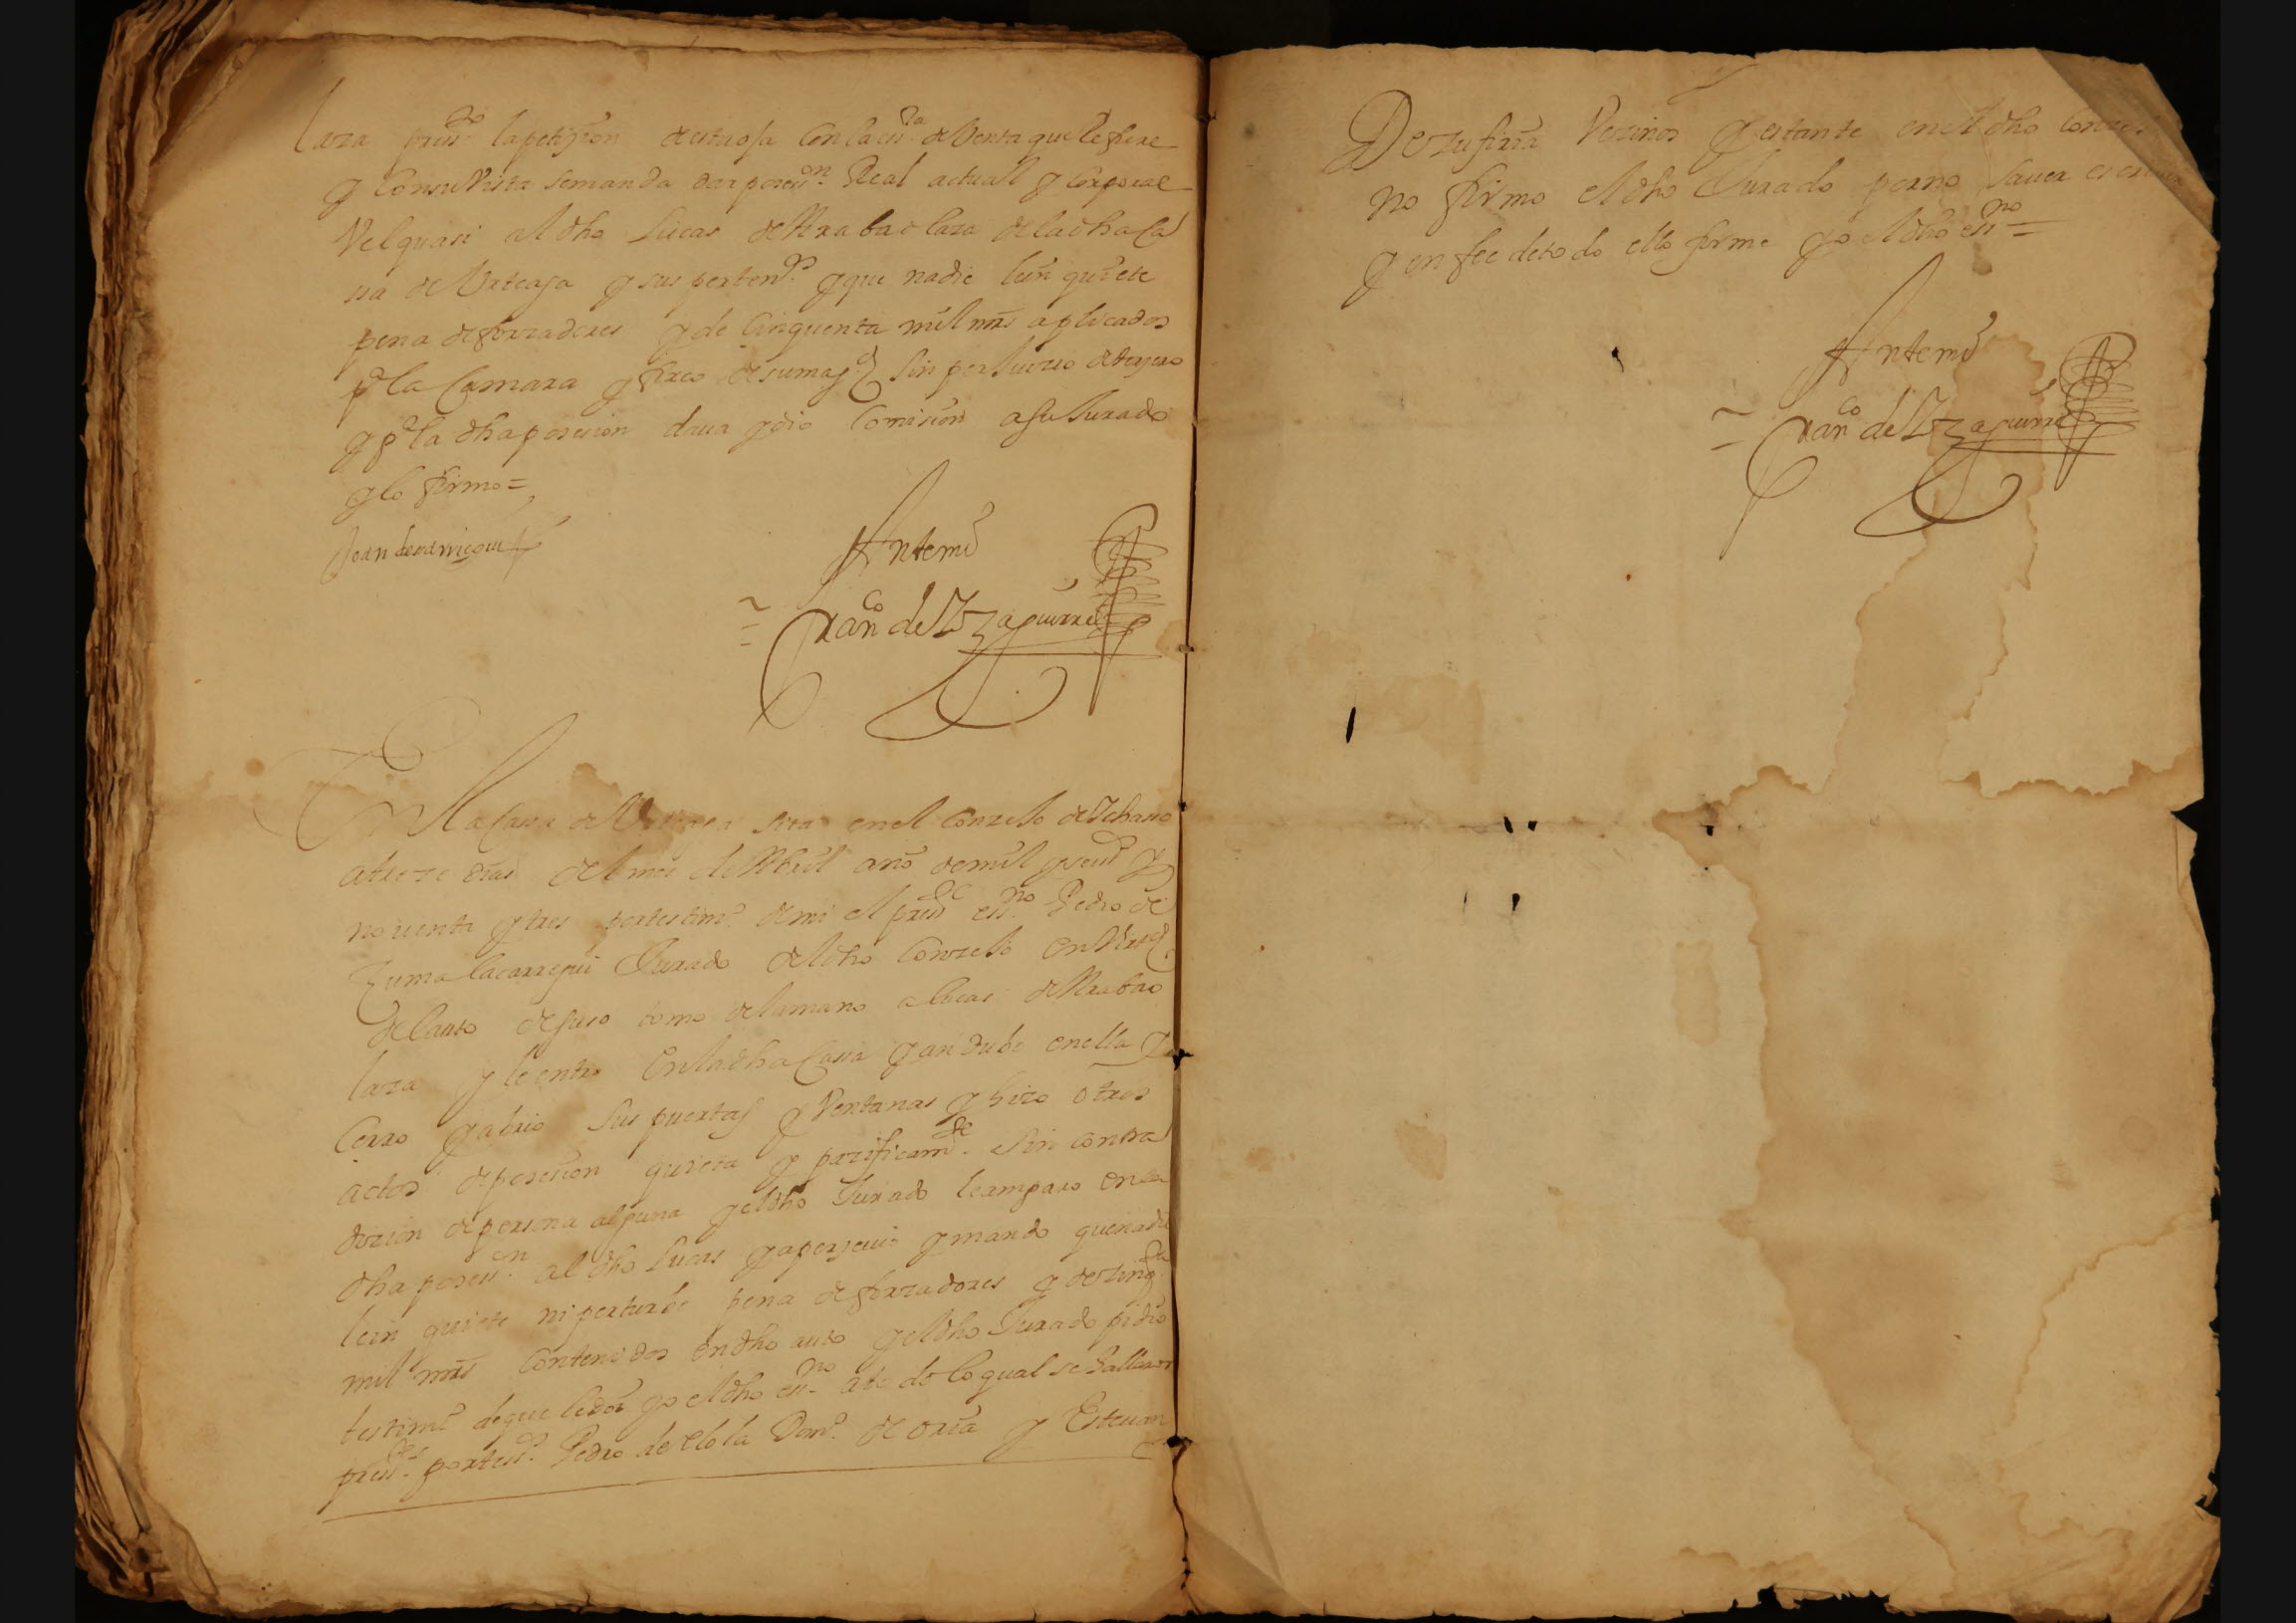 laza press.do la petizion desta oja con la ess.ra de Venta que Refiere
y con su Vista se manda dar posess.on Real actuall y corporal
Vel quasi al dho Lucas de Arabaolaza de la dha ca
sa de Urteaga y sus perten.as y que nadie le in quiete
pena de forzadores y de cinquenta mil mrs aplicados
p.a la Camara y fisco de su mag.d sin perJuicio de terzero
y p.a la dha posesion daua y dio Comision a su Jurado
y lo firmo =
Joan de
Antemi
Fran.co de Yzaguirre
En la Casa de Urteaga sita en el Conzejo de Ychaso
a treze dias del mes de Abril año de mil y seis.os y
nouenta y tres por testim.o de mi el pres.te ess.no Pedro de
Zumalacarregui Jurado del dho Conzejo en Virt.d
del auto de suso tomo de la mano a Lucas de Arabao
laza y le entro En la dha Cassa y andubo en ella y
Cerro y abrio sus puertas y Ventanas y hizo otros
actos de posesion quieta y pazificam.te sin contra
dizion de persona alguna y el dho Jurado le amparo en la
dha posess.on al dho Lucas y aperziuio y mando que nadie
le in quiete ni perturbe pena de forzadores y de zinq.ta
mil mrs Contenidos en dho auto y el dho Jurado pidio
testim.o de que le doi yo el dho ess.no a todo lo qual se hallaron
press.tes por tess.os Pedro de Elola Dom.o de oria y Esteuan
De zufiria Vezinos y estante en el dho Conzejo
no firmo el dho Jurado por no sauer escriuir
y en fee de todo ello firme yo el dho ess.no =
Antemi
Fran.co de Yzaguirre